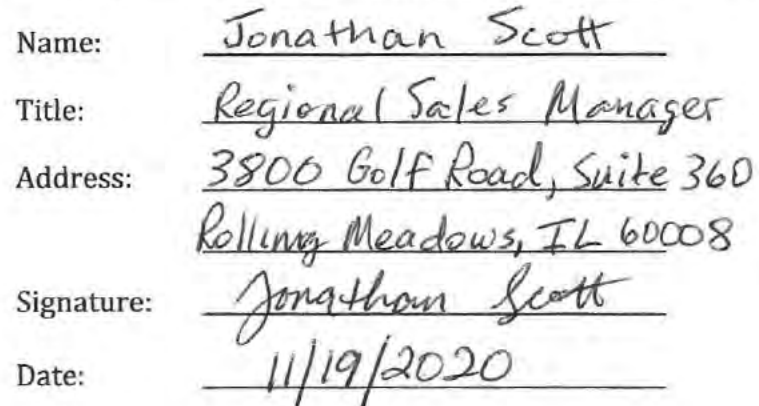 Name: Jonathan Scott
Title: Regional Sales Manager
Address: 3800 Golf Road, Suite 360
Rolling Meadows, IL 60008
Signature: Jonathan Scott
Date: 11/19/2020